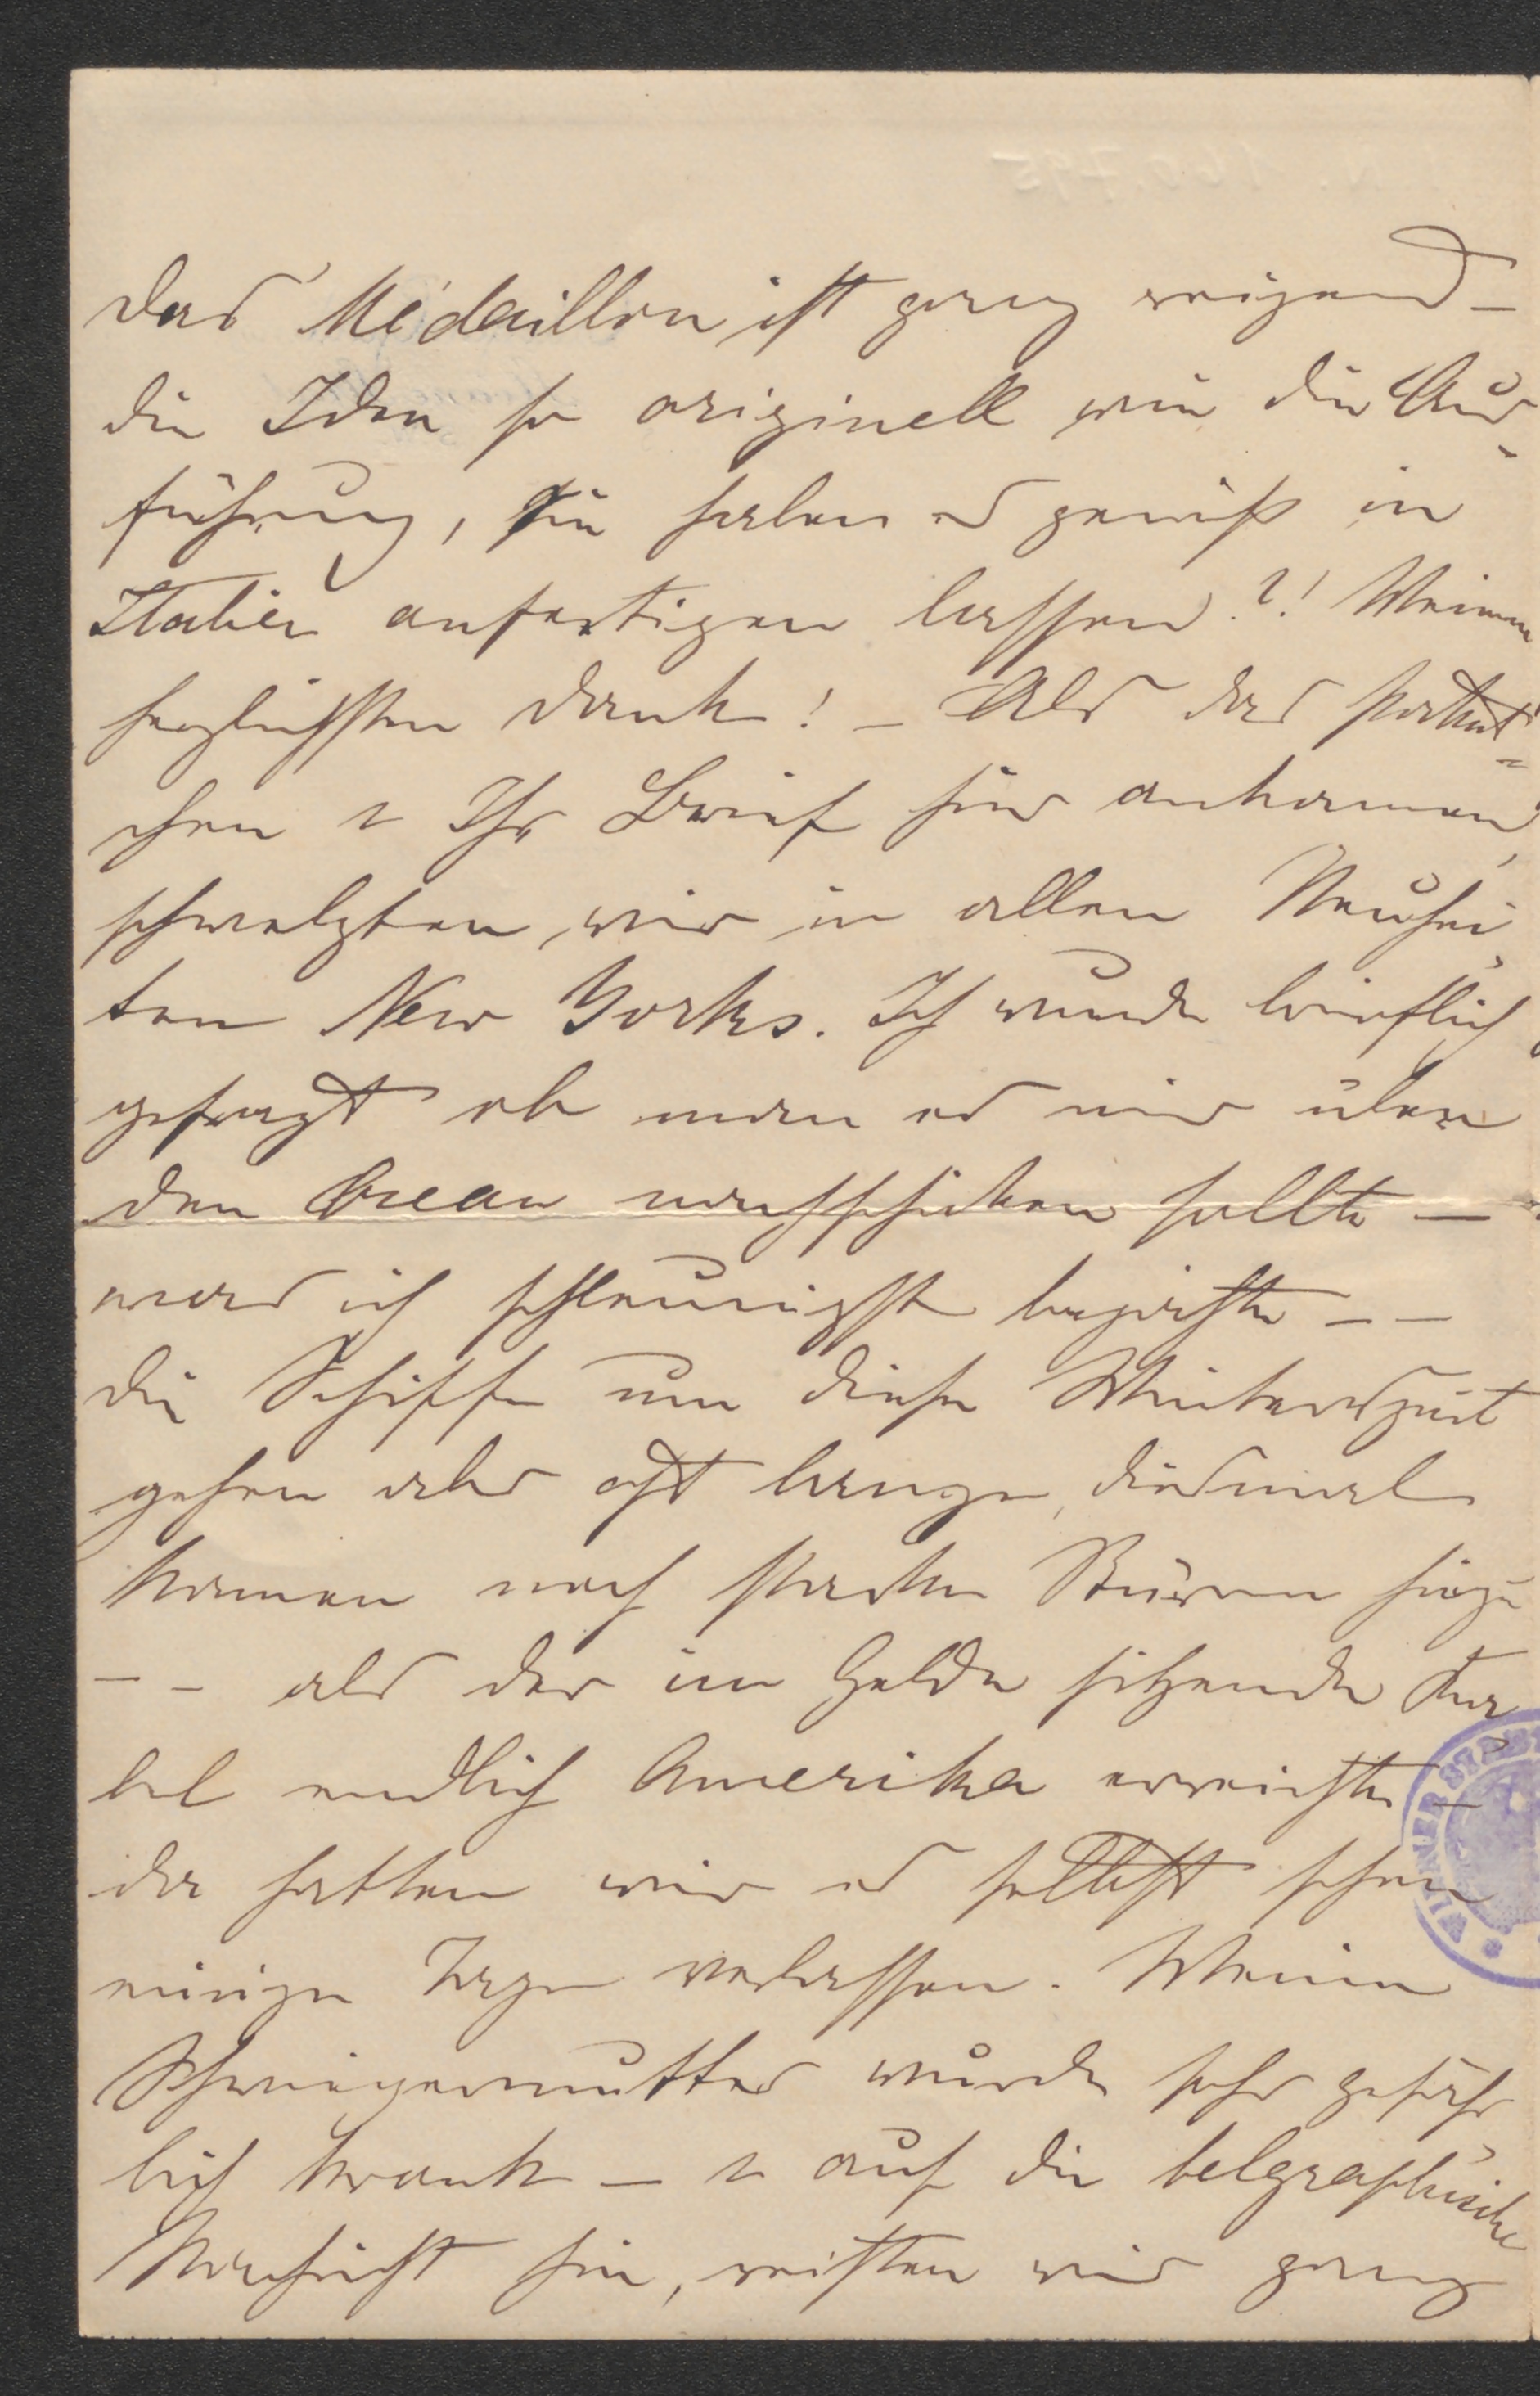 das Médaillon ist ganz reizend –
die Idee so originell wie die Aus-
führung, Sie haben es gewiß in
Italien anfertigen lassen?! Meinen
herzlichsten Dank! – Als das Paket=
chen & Ihr Brief hier ankamen,
schwelgten wir in allen Neuhei-
ten New Yorks. Ich wurde brieflich
gefragt ob man es mir über
den Ocean nachschicken sollte –
was ich schleunigst bejahte – –
die Schiffe um diese Winterszeit
gehen aber oft lange, diesmal
kamen noch starke Stürme hinzu
– – als der im Gelde sitzende
endlich Amerika erreichte –
da hatten wir es selbst schon
einige Tage verlassen. Meine
Schwiegermutter wurde sehr gefähr-
lich krank – & auf die telgraphische
Nachricht hin, reisten wir ganz